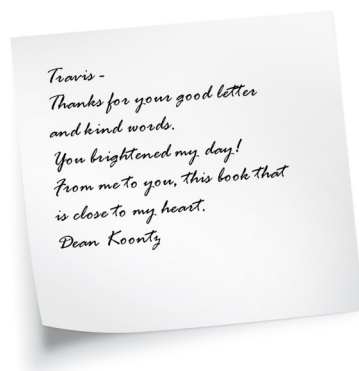 Travis -
Thanks for your good letter
and kind words.
You brightened my day!
From me to you, this book that
is close to my heart.
Dean Koontz